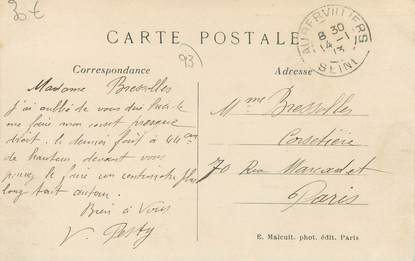 30 €
CARTE POSTALE
AUBERVILLIERS
8 30
14 - 1
13
SEINE
93
Correspondance
Adresse
Madame Bresselles
J'ai oublié de vous dire
me faire mon corset presque
droit. le devant fait à 44 cm
de hauteur devant vous
pouvez le faire un centimètre plus
long tout autour.
Bien à Vous
V.
Mme Bresselles
Corsetière
70 Rue Marcadet
Paris
E. Malcuit, phot. édit. Paris